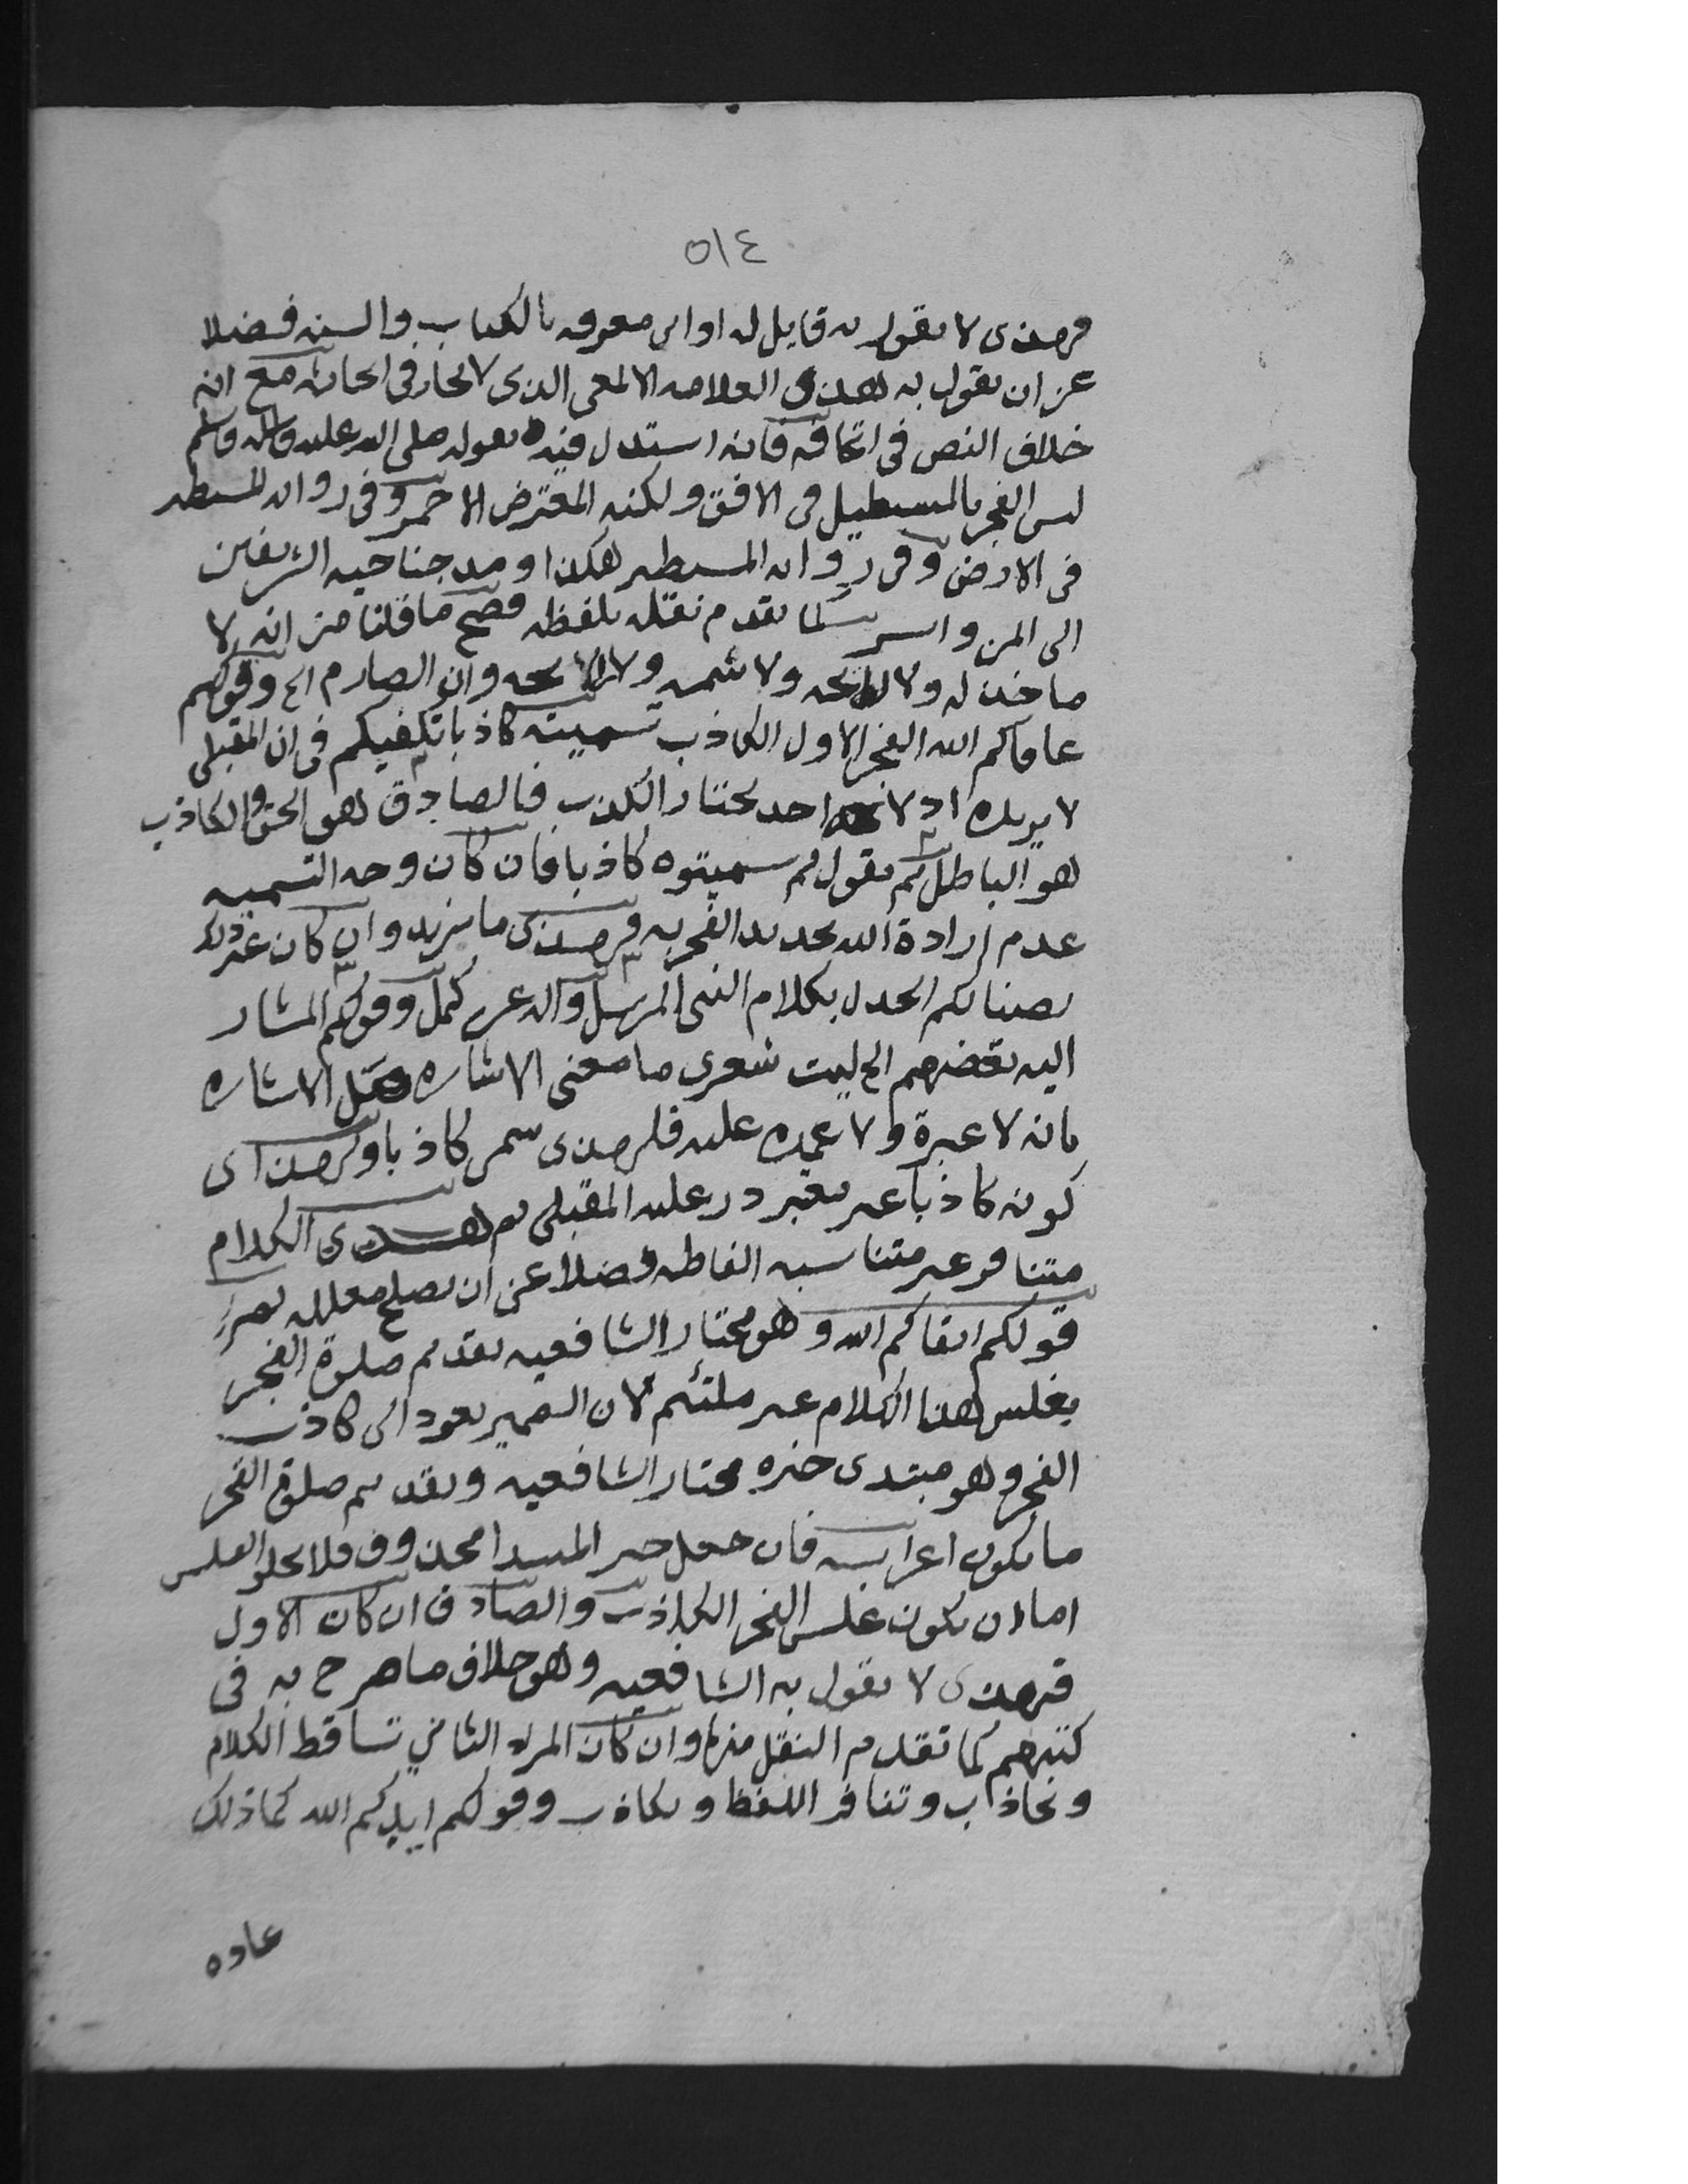 ٥١٤
فهذى لا يقول به قايل له ادانى معرفه بالكتاب والسنه فضلا
عن ان يقول به هذى العلامه الالمعى الذى لا يجارى فى ابحاثه مع انه
خلاف النص فى اتحافه فانه استدل فيه بقوله صلى الله عليه واله وسلم
ليس الفجر بالمستطيل فى الافق ولكنه المعترض الاحمر وفى روايه المستطير
فى الارض وفى روايه المستطير هكذا ومد جناحيه الشريفين
الى اليمن واليسر كما تقدم نقله بلفظه فصح ما قلنا من انه لا
ماخذ له ولا ولا شمه ولا وان الصارم الخ وقولهم
عافاكم الله الفجر الاول الكاذب تسميته كاذبا تكفيكم فى ان المقبلى
لا يريده اذ لا احد يختار الكذب فالصادق هو الحق والكاذب
هو الباطل ثم نقول لم سميتوه كاذبا فان كان وجه التسميه
عدم ارادة الله تحديد الفجر به فهذى ما نريد وان كان غير ذلك
نصبنا لكم الجدل بكلام النبى المرسل واله عن كمل وقولكم المشار
اليه بعضهم الخ ليت شعرى ما معنى الاشاره الاشاره
بانه لا عبرة ولا عمده عليه فلهذى سمى كاذبا ولهذا اى
كونه كاذبا غير معتبر در عليه المقبلى ثم هذى الكلام
متنافر غير متناسبه الفاظه فضلا عن ان يصلح معلله
قولكم ابقاكم الله وهو مختار الشافعيه تقديم صلوة الفجر
بغلس هذا الكلام غير ملتئم لان الضمير يعود الى كاذب
الفجر وهو مبتدى خبره مختار الشافعيه وتقديم صلوة الفجر
ما يكون اعرابه فان جعل خبر المبتدا محذوف فلا يخلو الغلس
اما ان يكون غلس الفجر الكاذب والصادق ان كان الاول
فهذى لا يقول به الشافعيه وهو خلاف ما صرح به فى
كتبهم كما تقدم النقل منها وان كان المراد الثانى تساقط الكلام
وتجاذب وتنافر اللفظ وتكاذب وقولكم ايدكم الله كما ذلك
عاده